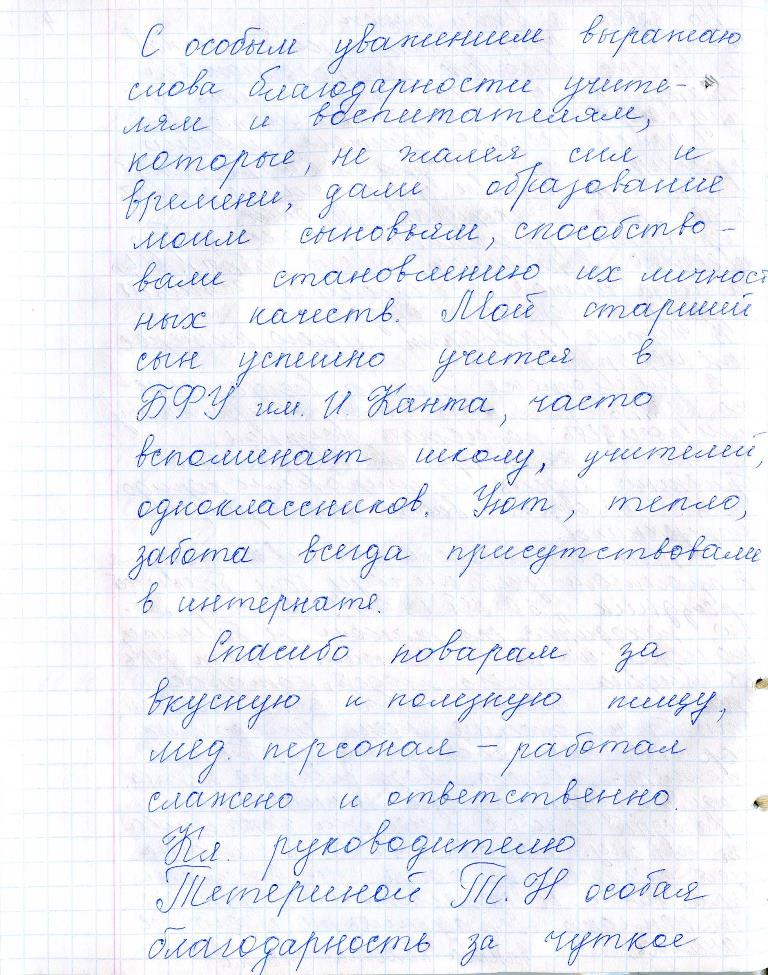 С особым уважением выражаю
слова благодарности учите-
лям и воспитателям,
которые, не жалея сил и
времени, дали образование
моим сыновьям, способство-
вали становлению их личност
ных качеств. Мой старший
сын успешно учится в
БФУ им. И. Канта, часто
вспоминает школу, учителей,
одноклассников. Уют, тепло,
забота всегда присутствовали
в интернате.
Спасибо поварам за
вкусную и полезную пищу,
мед. персонал – работал
слажено и ответственно.
Кл. руководителю
Тетериной Т. Н особая
благодарность за чуткое